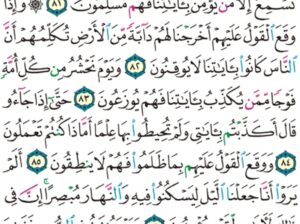 تُسْمِعُ إِلَّا مَن يُؤْمِنُ بِـَٔايَٰتِنَا فَهُم مُّسْلِمُونَ ٨١ ۞ وَإِذَا
وَقَعَ ٱلْقَوْلُ عَلَيْهِمْ أَخْرَجْنَا لَهُمْ دَآبَّةً مِّنَ ٱلْأَرْضِ تُكَلِّمُهُمْ أَنَّ
ٱلنَّاسَ كَانُوا۟ بِـَٔايَٰتِنَا لَا يُوقِنُونَ ٨٢ وَيَوْمَ نَحْشُرُ مِن كُلِّ أُمَّةٍ
فَوْجًا مِّمَّن يُكَذِّبُ بِـَٔايَٰتِنَا فَهُمْ يُوزَعُونَ ٨٣ حَتَّىٰٓ إِذَا جَآءُو
قَالَ أَكَذَّبْتُم بِـَٔايَٰتِى وَلَمْ تُحِيطُوا۟ بِهَا عِلْمًا أَمَّاذَا كُنتُمْ تَعْمَلُونَ
٨٤ وَوَقَعَ ٱلْقَوْلُ عَلَيْهِم بِمَا ظَلَمُوا۟ فَهُمْ لَا يَنطِقُونَ ٨٥ أَلَمْ
يَرَوْا۟ أَنَّا جَعَلْنَا ٱلَّيْلَ لِيَسْكُنُوا۟ فِيهِ وَٱلنَّهَارَ مُبْصِرًا إِنَّ فِى